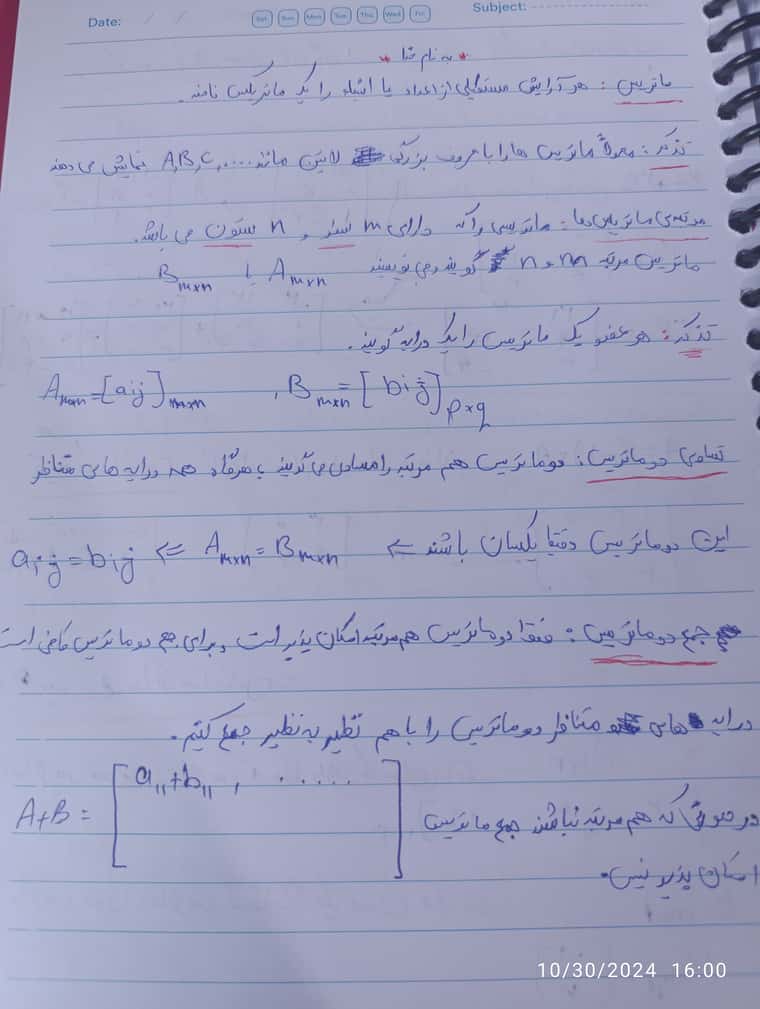 Date: / /
Sat Sun Mon Tue Thu Wed Fri
Subject:
* به نام خدا *
ماتریس : هر آرایش مستطیلی از اعداد یا اشیاء را یک ماتریکس نامند.
تذکر : معمولاً ماتریس ها را با حروف بزرگ لاتین مانند .... A,B,C, نمایش می دهند
مرتبه ی ماتریس ها : ماتریسی را که دارای m سطر و n ستون می باشد.
ماتریس مرتبه n و m گویند و می نویسند A m×n یا B m×n
تذکر : هر عضو یک ماتریس را یک درایه گویند.
A m×n = [aij] m×n , B m×n = [bij] p×q
تساوی دو ماتریس : دو ماتریس هم مرتبه را مساوی می گویند هرگاه همه درایه های متناظر
این دو ماتریس دقیقا یکسان باشند ⇐ A m×n = B m×n ⇐ aij = bij
جمع دو ماتریس : فقط دو ماتریس هم مرتبه امکان پذیر است و برای جمع دو ماتریس کافی است
درایه های متناظر دو ماتریس را با هم نظیر به نظیر جمع کنیم.
A+B = [ a11+b11 , ...... ]
در صورتی که هم مرتبه نباشند جمع ماتریس
امکان پذیر نیس.
10/30/2024 16:00